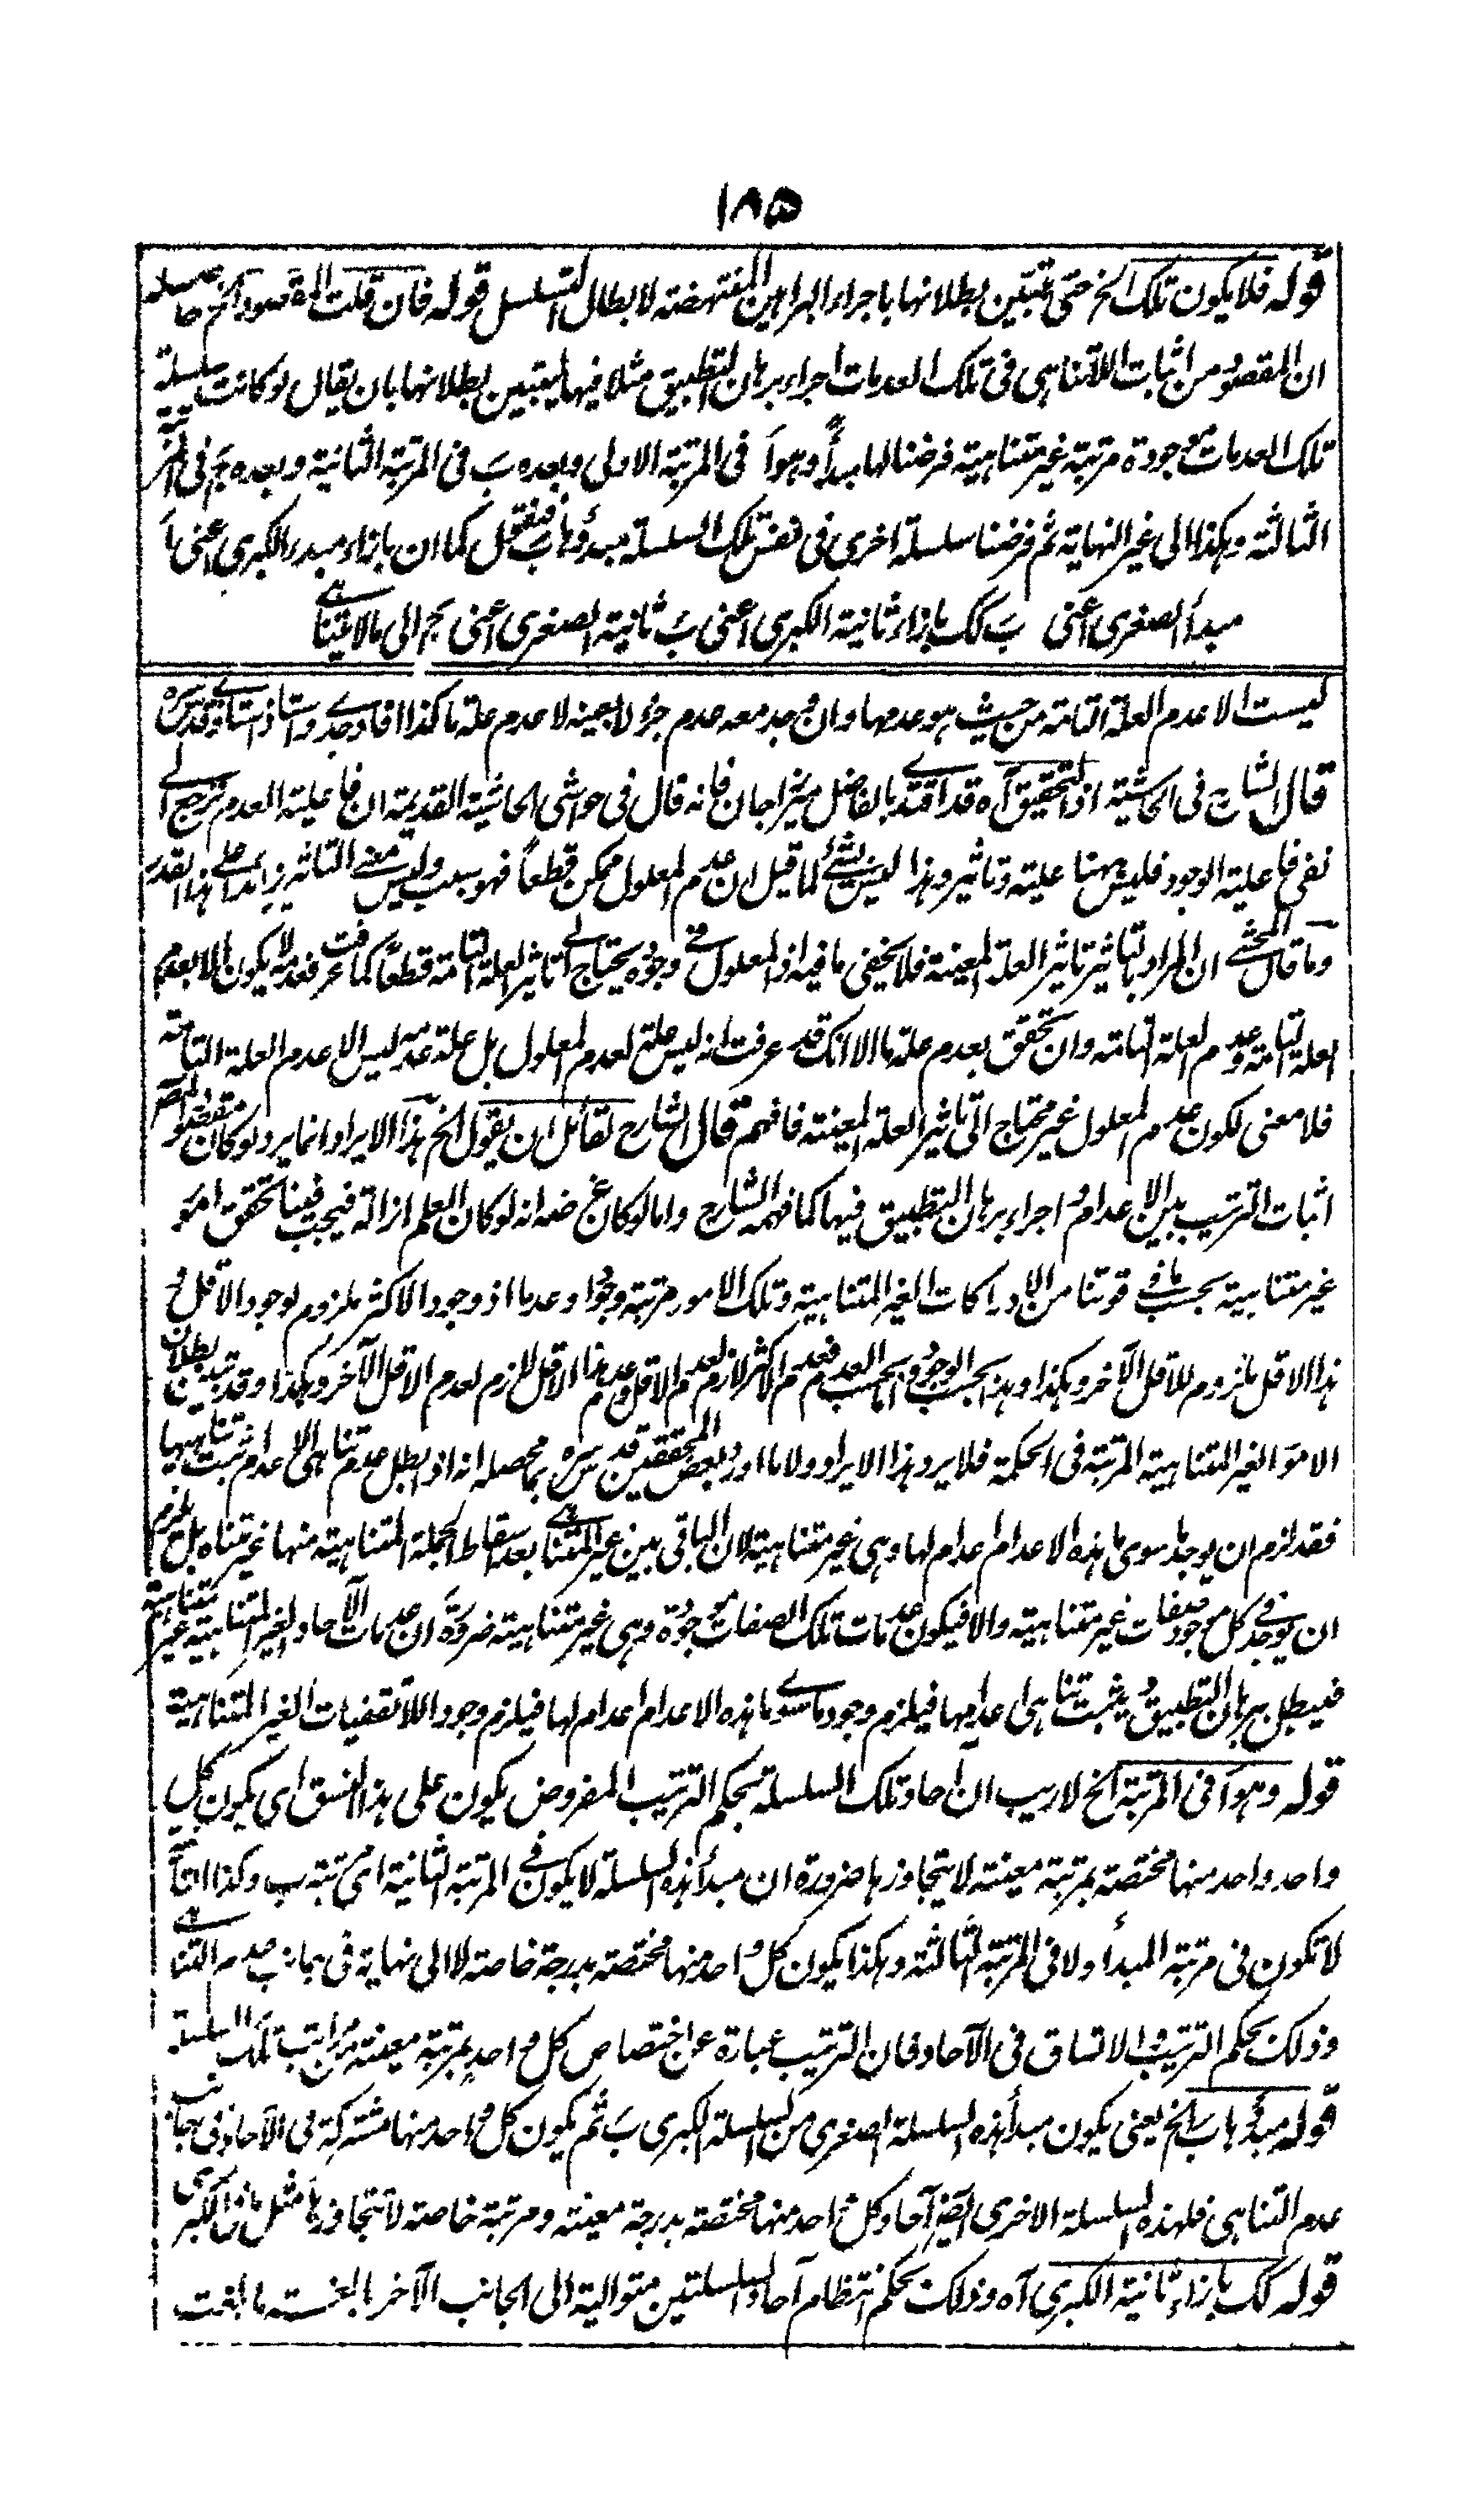 ١٨٥
قوله فلا يكون تلك الخ حتى يتبين بطلانها باجراء البراهين المنتهضة لابطال التسلسل قوله فان قلت المقصود الخ حاصله
ان المقصود من اثبات اللاتناهى فى تلك العدمات اجراء برهان التطبيق مثلا فيها ليتبين بطلانها بان يقال لو كانت سلسلة
تلك العدمات موجودة مرتبة غير متناهية فرضنا لها مبدأ وهو آ فى المرتبة الاولى وبعده بَ فى المرتبة الثانية وبعده جَ فى المرتبة
الثالثة وهكذا الى غير النهاية ثم فرضنا سلسلة اخرى فى نفس تلك السلسلة مبدؤها بَ فنقول كما ان بازاء مبدء الكبرى اعنى آ
مبدأ الصغرى اعنى بَ كك بازاء ثانية الكبرى اعنى بَ ثانية الصغرى اعنى جَ الى ما لا يتناهى
ليست الا عدم العلة التامة من حيث هو عدمها وان وجد معه عدم جزء لا بعينه لا عدم علة ما كذا افاد جدى واستاذ استاذى قدس سره
قال الشارح فى الحاشية اذ التحقيق آه قد اقتدى بالفاضل ميرزا جان فانه قال فى حواشى الحاشية القديمة ان فاعلية العدم ترجع الى
نفى فاعلية الوجود فليس ههنا علية وتاثير وهذا ليس بشئ لما قيل ان عدم المعلول ممكن قطعاً فهو بسبب وليس معنى التاثير زائدا على هذا القدر
وما قال المحشى ان المراد بالتاثير تاثير العلة المعينة فلا يخفى ما فيه اذ المعلول فى وجوده يحتاج الى تاثير العلة التامة قطعاً كما عرفت فعدمه لا يكون الا بعدم
العلة التامة وعدم العلة التامة وان تحقق بعدم علة ما الا انك قد عرفت انه ليس علة لعدم المعلول بل علة عدمه ليس الا عدم العلة التامة
فلا معنى لكون عدم المعلول غير محتاج الى تاثير العلة المعينة فافهم قال الشارح لقائل ان يقول الخ هذا الايراد انما يرد لو كان مقصود المصنف
اثبات الترتيب بين الاعدام واجراء برهان التطبيق فيها كما فهمه الشارح واما لو كان غرضه انه لو كان العلم ازالة فيجب فينا تحقق امور
غير متناهية بحسب ما فى قوتنا من الادراكات الغير المتناهية وتلك الامور مرتبة وجودا وعدما اذ وجود الاكثر ملزوم لوجود الاقل و
هذا الاقل ملزوم للاقل الآخر وهكذا وهذا بحسب الوجود واما بحسب العدم فعدم الاكثر لازم لعدم الاقل وعدم هذا الاقل لازم لعدم الاقل الآخر وهكذا وقد تبين بطلان
الامور الغير المتناهية المرتبة فى الحكمة فلا يرد هذا الايراد ولا ما اورد بعض المحققين قدس سره بما محصله انه اذا بطل عدم تناهى الاعدام ثبت تناهيها
فقد لزم ان يوجد ما سوى هذه الاعدام اعدام لها وهى غير متناهية لان الباقى بين غير المتناهى بعد اسقاط الجملة المتناهية منها غير متناه بل يلزم
ان يوجد فى كل موجود صفات غير متناهية والا فيكون عدمات تلك الصفات موجودة وهى غير متناهية ضرورة ان عدمات الآحاد الغير المتناهية غير متناهية
فيبطل ببرهان التطبيق ويثبت تناهى اعدامها فيلزم وجود ما سوى هذه الاعدام اعدام لها فيلزم وجود اللاتقفيات الغير المتناهية
قوله وهو آ فى المرتبة الخ لا ريب ان آحاد تلك السلسلة بحكم الترتيب المفروض يكون على هذا النسق اى يكون كل
واحد واحد منها مختصة بمرتبة معينة لا يتجاوزها ضرورة ان مبدأ هذه السلسلة لا يكون فى المرتبة الثانية اى مرتبة ب وكذا الثانية
لا تكون فى مرتبة المبدأ ولا فى المرتبة الثالثة وهكذا يكون كل واحد منها مختصة بدرجة خاصة لا الى نهاية فى جانب عدم التناهى
وذلك بحكم الترتيب والاتساق فى الآحاد فان الترتيب عبارة عن اختصاص كل واحد بمرتبة معينة من مراتب تلك السلسلة
قوله مبدؤها بَ الخ يعنى يكون مبدأ هذه السلسلة الصغرى من السلسلة الكبرى بَ ثم يكون كل واحد منها مشتركة فى الآحاد فى جانب
عدم التناهى فلهذه السلسلة الاخرى ايضا آحاد كل واحد منها مختصة بدرجة معينة ومرتبة خاصة لا تتجاوزها مثل ما فى الكبرى
قوله كك بازاء ثانية الكبرى آه وذلك بحكم انتظام آحاد السلسلتين متوالية الى الجانب الآخر بالغة ما بلغت